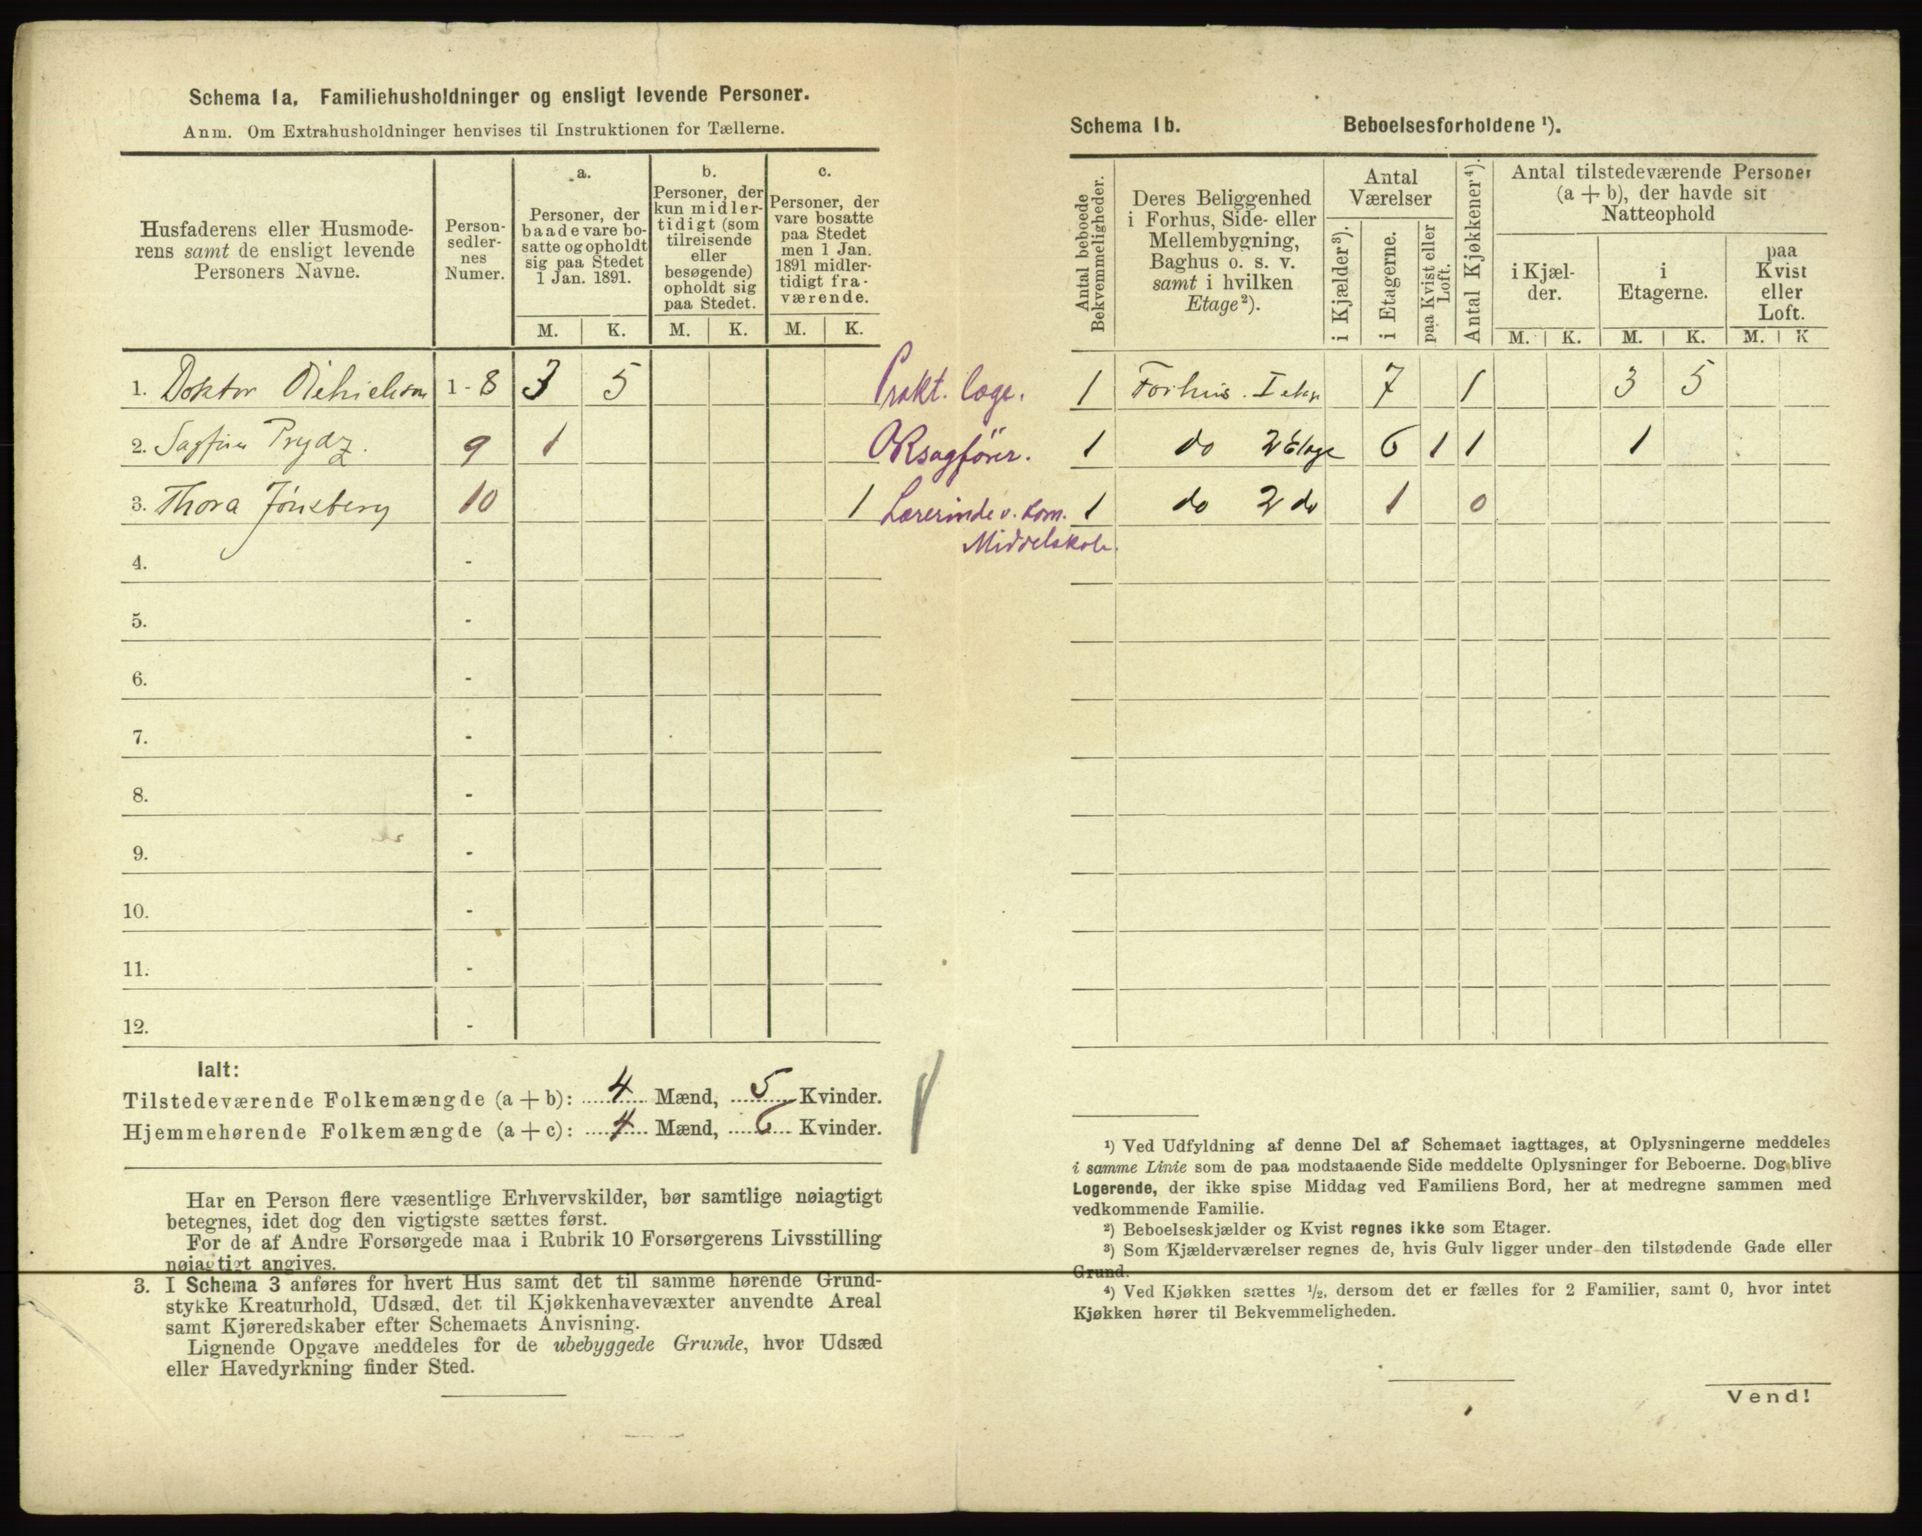 Schema 1a. Familiehusholdninger og ensligt levende Personer.
Anm. Om Extrahusholdninger henvises til Instruktionen for Tællerne.
Husfaderens eller Husmoderens samt de ensligt levende Personers Navne.
Person-sedler-nes Numer.
a.
Personer, der baade vare bosatte og opholdt sig paa Stedet 1 Jan. 1891.
b.
Personer, der kun midlertidigt (som tilreisende eller besøgende) opholdt sig paa Stedet.
c.
Personer, der vare bosatte paa Stedet men 1 Jan. 1891 midlertidigt fraværende.
M. K. M. K. M. K.
1. Doktor 1-8 3 5 Prakt. læge.
2. Sagfører Prydz. 9 1 ORsagfører.
3. Thora Jönsberg 10 1 Lærerinde v. kom. Middelskole.
4. -
5. -
6. -
7. -
8. -
9. -
10. -
11. -
12. -
Ialt:
Tilstedeværende Folkemængde (a + b): 4 Mænd, 5 Kvinder.
Hjemmehørende Folkemængde (a + c): 4 Mænd, 6 Kvinder.
Har en Person flere væsentlige Erhvervskilder, bør samtlige nøiagtigt
betegnes, idet dog den vigtigste sættes først.
For de af Andre Forsørgede maa i Rubrik 10 Forsørgerens Livsstilling
nøiagtigt angives.
3. I Schema 3 anføres for hvert Hus samt det til samme hørende Grund-
stykke Kreaturhold, Udsæd, det til Kjøkkenhavevæxter anvendte Areal
samt Kjøreredskaber efter Schemaets Anvisning.
Lignende Opgave meddeles for de ubebyggede Grunde, hvor Udsæd
eller Havedyrkning finder Sted.
Schema 1b. Beboelsesforholdene ¹).
Antal beboede Bekvemmeligheder.
Deres Beliggenhed i Forhus, Side- eller Mellembygning, Baghus o. s. v. samt i hvilken Etage²).
Antal Værelser
i Kjælder³).
i Etagerne.
paa Kvist eller Loft.
Antal Kjøkkener⁴).
Antal tilstedeværende Personer (a + b), der havde sit Natteophold
i Kjælder.
i Etagerne.
paa Kvist eller Loft.
M. K. M. K. M. K
1 Forhus. I etg 7 1 3 5
1 do 2 Etage 6 1 1 1
1 do 2 do 1 0
¹) Ved Udfyldning af denne Del af Schemaet iagttages, at Oplysningerne meddeles
i samme Linie som de paa modstaaende Side meddelte Oplysninger for Beboerne. Dog blive
Logerende, der ikke spise Middag ved Familiens Bord, her at medregne sammen med
vedkommende Familie.
²) Beboelseskjælder og Kvist regnes ikke som Etager.
³) Som Kjælderværelser regnes de, hvis Gulv ligger under den tilstødende Gade eller
Grund.
⁴) Ved Kjøkken sættes ½, dersom det er fælles for 2 Familier, samt 0, hvor intet
Kjøkken hører til Bekvemmeligheden.
Vend!